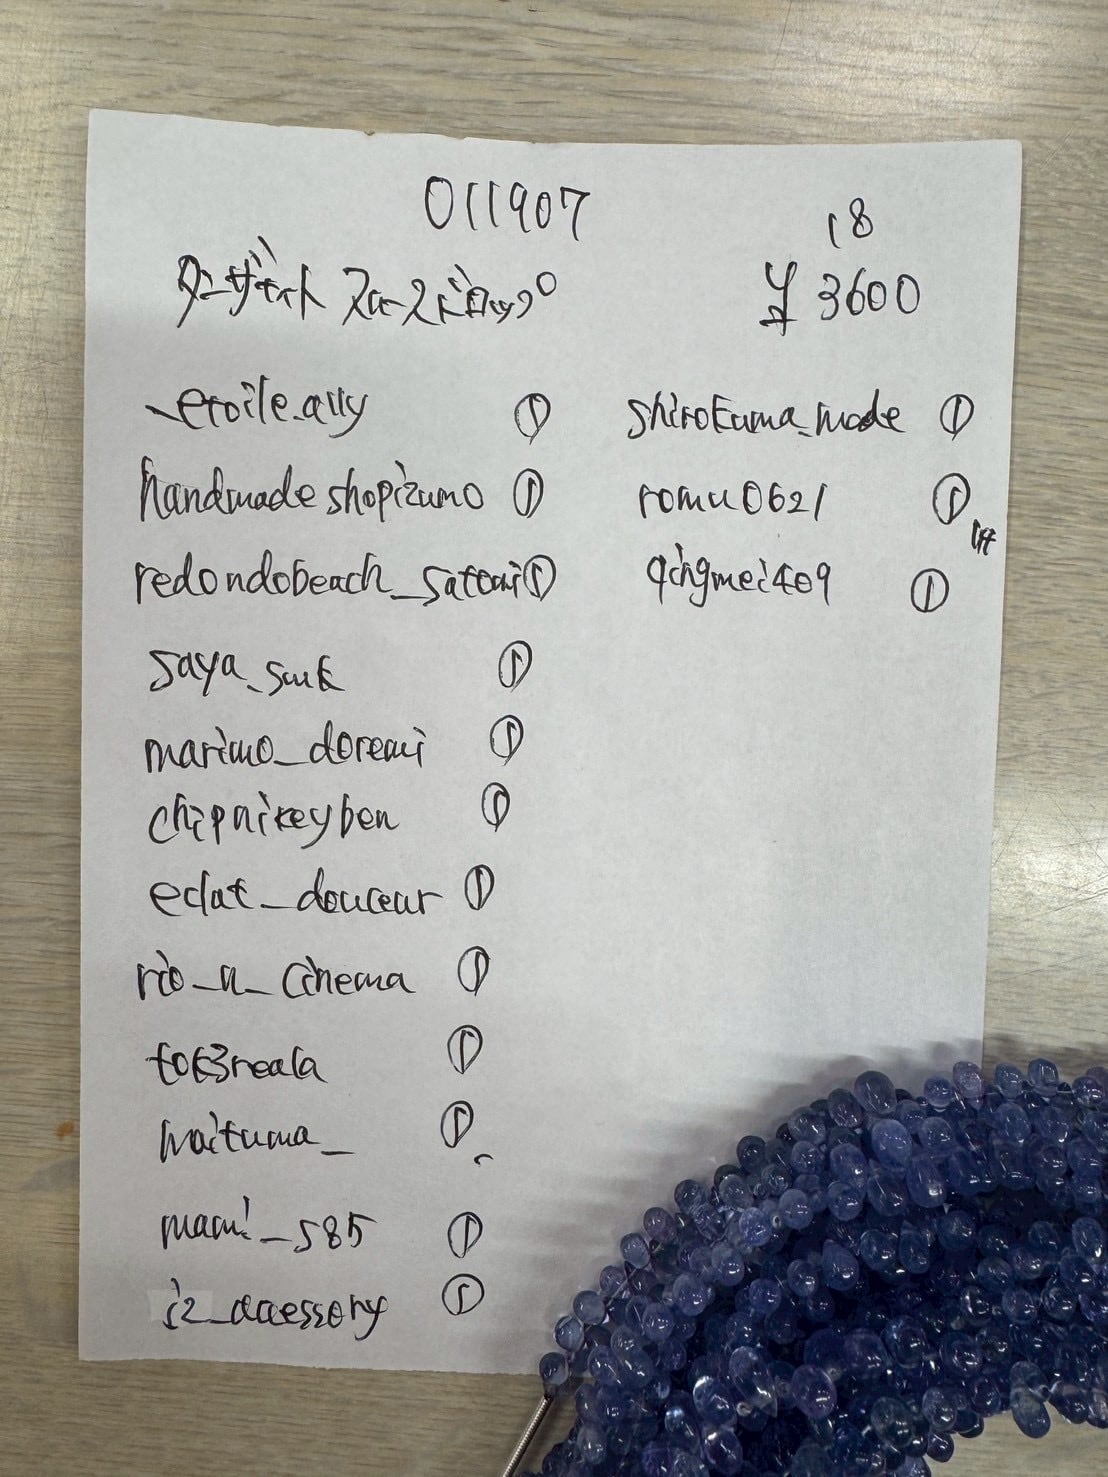 011907
18
タンザナイト スムースドロップ
¥3600
_etoile.ally ①
handmadeshopizumo ①
redondobeach_satomi ①
saya_smk ①
marimo_doremi ①
chipnikeyben ①
eclat_douceur ①
rio_n_cinema ①
tok3reala ①
maituma_ ①
mami_s85 ①
iz_accessory ①
shirokuma_made ①
romu0621 ①
qingmei409 ①